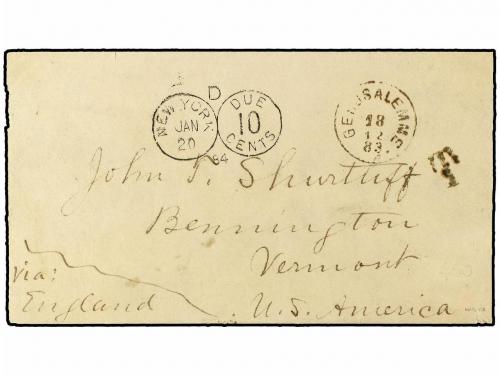 D
NEW YORK
JAN
20
84
DUE
10
CENTS
GERUSALEMME
18
12
83
T
John S. Shurtleff
Bennington
Vermont
via:
England
U.S. America